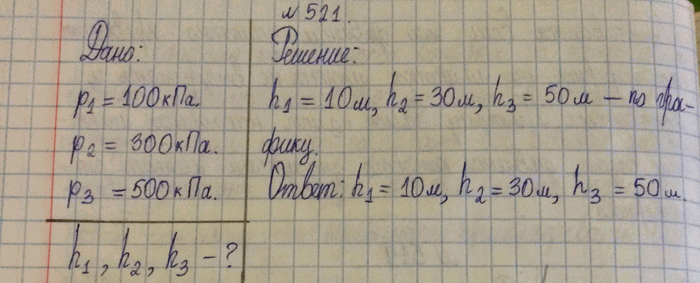 № 521.
Дано:
p1 = 100 кПа.
p2 = 300 кПа.
p3 = 500 кПа.
h1, h2, h3 - ?
Решение:
h1 = 10 м, h2 = 30 м, h3 = 50 м — по гра-
фику.
Ответ: h1 = 10 м, h2 = 30 м, h3 = 50 м.